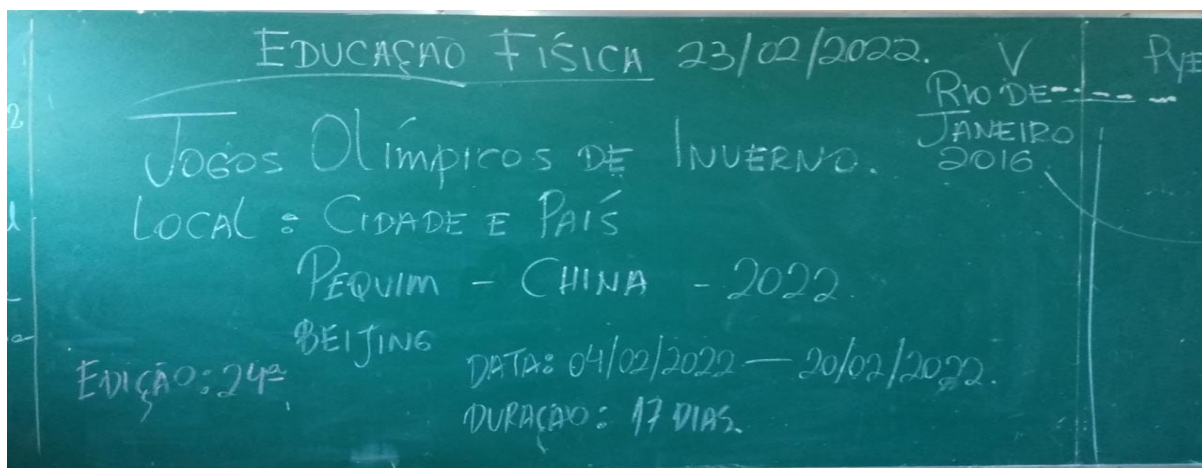 EDUCAÇÃO FÍSICA 23/02/2022.
V
RIO DE
JANEIRO
2016
JOGOS OlímpICOS DE INVERNO.
LOCAL: CIDADE E PAÍS
PEQUIM - CHINA - 2022.
BEIJING
EDIÇÃO: 24ª
DATA: 04/02/2022 — 20/02/2022.
DURAÇÃO: 17 DIAS.